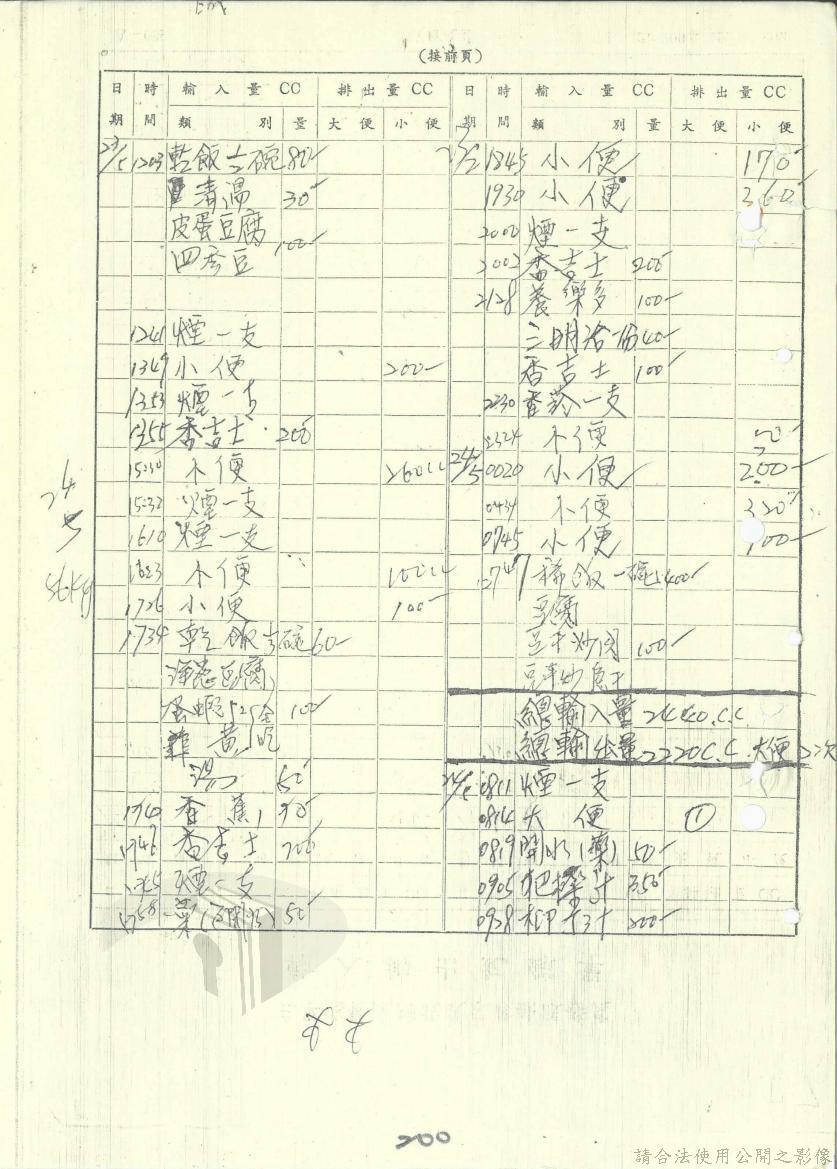 (接前頁)
日期 時間 輸入量CC 類別 量 排出量CC 大便 小便
日期 時間 輸入量CC 類別 量 排出量CC 大便 小便
23/5 1203 乾飯 碗 80-
清湯 30-
皮蛋豆腐 100-
四季豆
1241 煙一支
1349 小便 200-
1353 煙一支
1355 香吉士 200-
1530 小便 260cc
1532 煙一支
1610 煙一支
1623 小便 100cc
1726 小便 100-
1734 乾飯 碗 60-
豆腐
100-
湯 50-
1740 香蕉 90-
1746 香吉士 200-
煙一支
1758 藥(開水) 50-
24/5
56kg
1845 小便 170-
1930 小便 260-
2000 煙一支
2002 香吉士 200-
2128 養樂多 100-
三明治一份 40-
香吉士 100-
2230 香菸一支
2324 小便
24/5 0020 小便 200-
0434 小便 320-
0745 小便 100-
0747 稀飯一碗 400-
豆腐
豆干炒肉 100-
總輸入量 2440.C.C.
總輸出量 2220C.C. 大便 2次
24/5 0811 煙一支
0814 大便 ①
0819 開水(藥) 50-
0905 把樂汁 350-
0928 柳丁汁 200-
200
請合法使用公開之影像